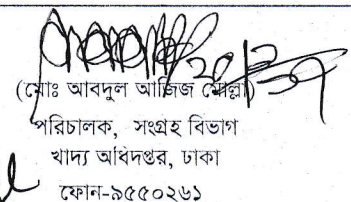 (মোঃ আবদুল আজিজ মোল্লা)
পরিচালক, সংগ্রহ বিভাগ
খাদ্য অধিদপ্তর, ঢাকা
ফোন-৯৫৫০২৬১